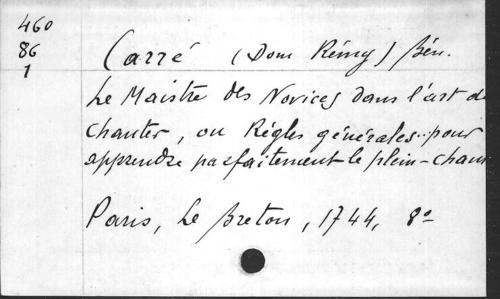 460
86
1
Carré (Dom Rémy) Bén.
Le Maistre des Novices dans l'art de
chanter, ou Règles générales.. pour
apprendre parfaitement le plein-chant
Paris, Le Breton, 1744, 8º